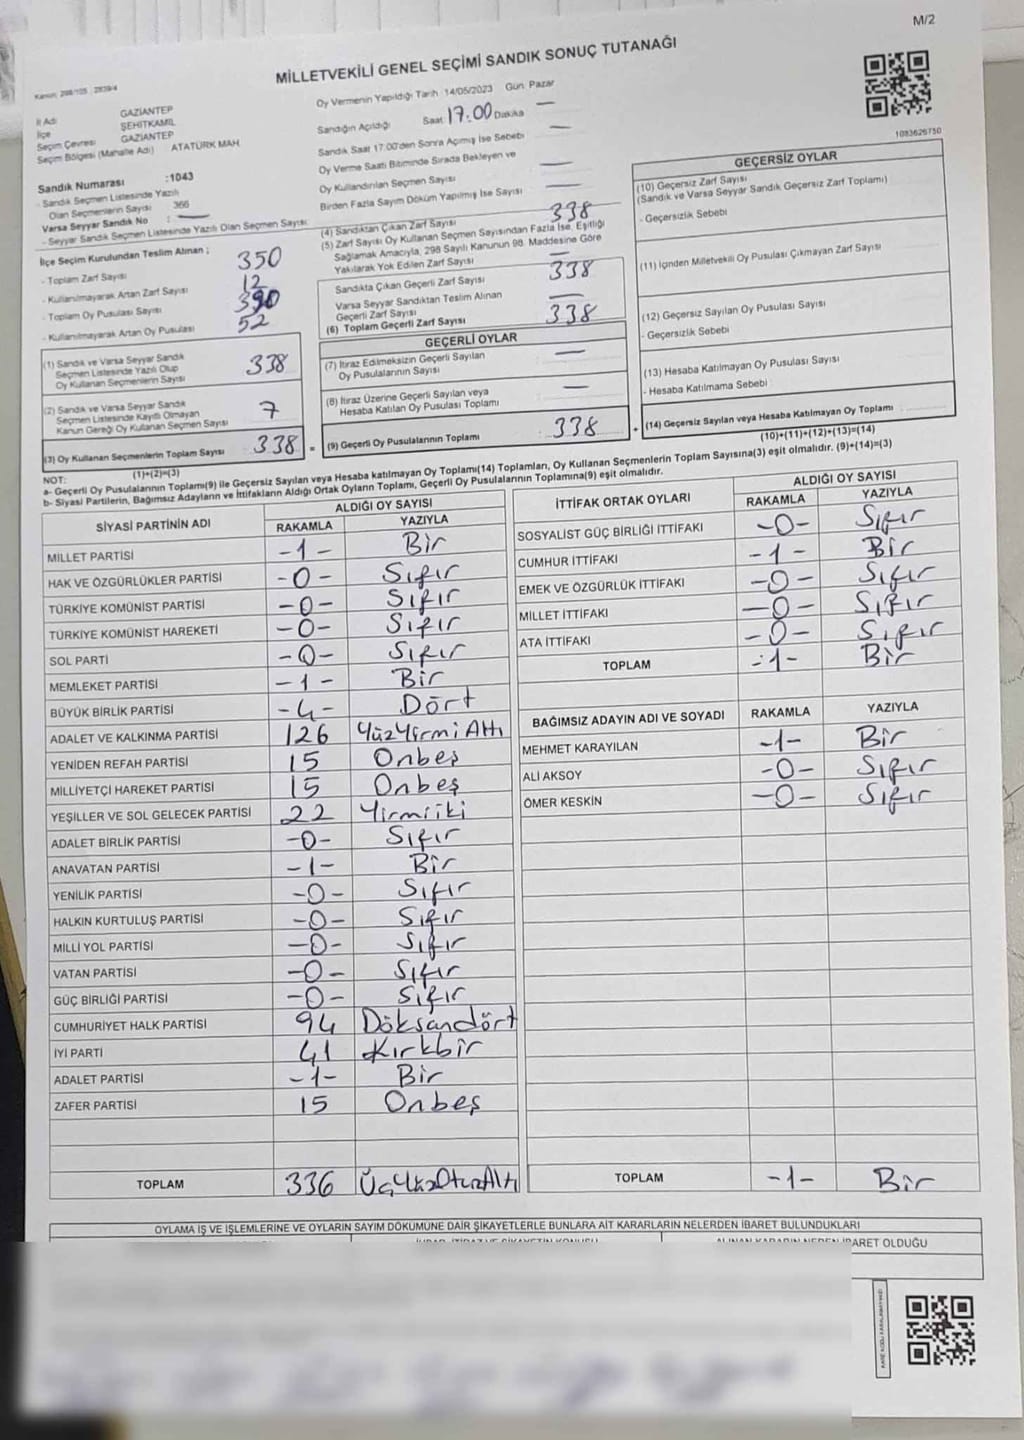 M/2
MİLLETVEKİLİ GENEL SEÇİMİ SANDIK SONUÇ TUTANAĞI
1083626750
İl Adı GAZİANTEP
İlçe ŞEHİTKAMİL
Seçim Çevresi GAZİANTEP
Seçim Bölgesi (Mahalle Adı) ATATÜRK MAH.
Sandık Numarası :1043
- Sandık Seçmen Listesinde Yazılı
Olan Seçmenlerin Sayısı 366
Varsa Seyyar Sandık No : —
- Seyyar Sandık Seçmen Listesinde Yazılı Olan Seçmen Sayısı
İlçe Seçim Kurulundan Teslim Alınan ;
- Toplam Zarf Sayısı 350
- Kullanılmayarak Artan Zarf Sayısı 12
- Toplam Oy Pusulası Sayısı 390
- Kullanılmayarak Artan Oy Pusulası 52
(1) Sandık ve Varsa Seyyar Sandık
Seçmen Listesinde Yazılı Olup
Oy Kullanan Seçmenlerin Sayısı 338
(2) Sandık ve Varsa Seyyar Sandık
Seçmen Listesinde Kayıtlı Olmayan
Kanun Gereği Oy Kullanan Seçmen Sayısı 7
(3) Oy Kullanan Seçmenlerin Toplam Sayısı 338 =
(1)+(2)=(3)
Oy Vermenin Yapıldığı Tarih 14/05/2023 Gün Pazar
Sandığın Açıldığı Saat 17:00 Dakika —
Sandık Saat 17:00'den Sonra Açımış İse Sebebi —
Oy Verme Saati Bitiminde Sırada Bekleyen ve
Oy Kullandırılan Seçmen Sayısı —
Birden Fazla Sayım Döküm Yapılmış İse Sayısı —
(4) Sandıktan Çıkan Zarf Sayısı 338
(5) Zarf Sayısı Oy Kullanan Seçmen Sayısından Fazla İse, Eşitliği
Sağlamak Amacıyla, 298 Sayılı Kanunun 98. Maddesine Göre
Yakılarak Yok Edilen Zarf Sayısı —
Sandıkta Çıkan Geçerli Zarf Sayısı 338
Varsa Seyyar Sandıktan Teslim Alınan
Geçerli Zarf Sayısı —
(6) Toplam Geçerli Zarf Sayısı 338
GEÇERLİ OYLAR
(7) İtiraz Edilmeksizin Geçerli Sayılan
Oy Pusulalarının Sayısı —
(8) İtiraz Üzerine Geçerli Sayılan veya
Hesaba Katılan Oy Pusulası Toplamı —
(9) Geçerli Oy Pusulalarının Toplamı : 338 +
GEÇERSİZ OYLAR
(10) Geçersiz Zarf Sayısı
(Sandık ve Varsa Seyyar Sandık Geçersiz Zarf Toplamı)
- Geçersizlik Sebebi
(11) İçinden Milletvekili Oy Pusulası Çıkmayan Zarf Sayısı
(12) Geçersiz Sayılan Oy Pusulası Sayısı
- Geçersizlik Sebebi
(13) Hesaba Katılmayan Oy Pusulası Sayısı
- Hesaba Katılmama Sebebi
(14) Geçersiz Sayılan veya Hesaba Katılmayan Oy Toplamı
(10)+(11)+(12)+(13)=(14)
NOT:
a- Geçerli Oy Pusulalarının Toplamı(9) ile Geçersiz Sayılan veya Hesaba katılmayan Oy Toplamı(14) Toplamları, Oy Kullanan Seçmenlerin Toplam Sayısına(3) eşit olmalıdır. (9)+(14)=(3)
b- Siyasi Partilerin, Bağımsız Adayların ve İttifakların Aldığı Ortak Oyların Toplamı, Geçerli Oy Pusulalarının Toplamına(9) eşit olmalıdır.
SİYASİ PARTİNİN ADI ALDIĞI OY SAYISI
RAKAMLA YAZIYLA
MİLLET PARTİSİ -1- Bir
HAK VE ÖZGÜRLÜKLER PARTİSİ -0- Sıfır
TÜRKİYE KOMÜNİST PARTİSİ -0- Sıfır
TÜRKİYE KOMÜNİST HAREKETİ -0- Sıfır
SOL PARTİ -0- Sıfır
MEMLEKET PARTİSİ -1- Bir
BÜYÜK BİRLİK PARTİSİ -4- Dört
ADALET VE KALKINMA PARTİSİ 126 YüzYirmi Altı
YENİDEN REFAH PARTİSİ 15 Onbeş
MİLLİYETÇİ HAREKET PARTİSİ 15 Onbeş
YEŞİLLER VE SOL GELECEK PARTİSİ 22 Yirmiiki
ADALET BİRLİK PARTİSİ -0- Sıfır
ANAVATAN PARTİSİ -1- Bir
YENİLİK PARTİSİ -0- Sıfır
HALKIN KURTULUŞ PARTİSİ -0- Sıfır
MİLLİ YOL PARTİSİ -0- Sıfır
VATAN PARTİSİ -0- Sıfır
GÜÇ BİRLİĞİ PARTİSİ -0- Sıfır
CUMHURİYET HALK PARTİSİ 94 Döksandört
İYİ PARTİ 41 Kırkbir
ADALET PARTİSİ -1- Bir
ZAFER PARTİSİ 15 Onbeş
TOPLAM 336 ÜçYüzOtuzAltı
İTTİFAK ORTAK OYLARI ALDIĞI OY SAYISI
RAKAMLA YAZIYLA
SOSYALİST GÜÇ BİRLİĞİ İTTİFAKI -0- Sıfır
CUMHUR İTTİFAKI -1- Bir
EMEK VE ÖZGÜRLÜK İTTİFAKI -0- Sıfır
MİLLET İTTİFAKI -0- Sıfır
ATA İTTİFAKI -0- Sıfır
TOPLAM -1- Bir
BAĞIMSIZ ADAYIN ADI VE SOYADI RAKAMLA YAZIYLA
MEHMET KARAYILAN -1- Bir
ALİ AKSOY -0- Sıfır
ÖMER KESKİN -0- Sıfır
TOPLAM -1- Bir
OYLAMA İŞ VE İŞLEMLERİNE VE OYLARIN SAYIM DÖKÜMÜNE DAİR ŞİKAYETLERLE BUNLARA AİT KARARLARIN NELERDEN İBARET BULUNDUKLARI
ALINAN KARARIN NEDEN İBARET OLDUĞU